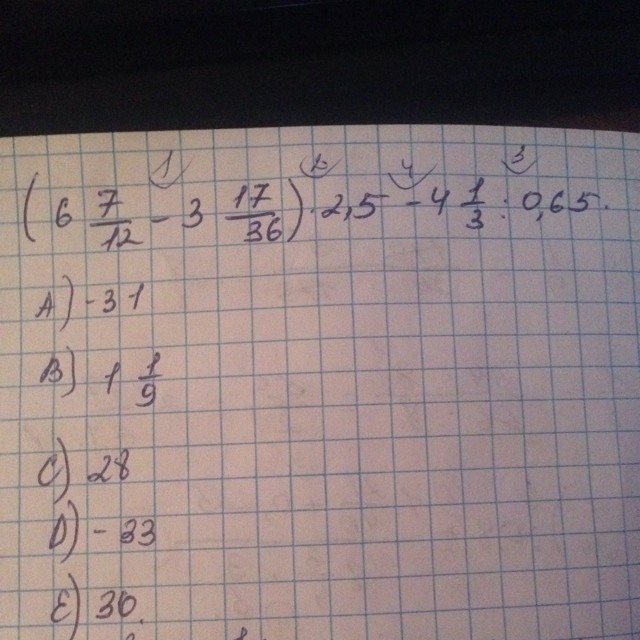 1 2 4 3
(6 7/12 - 3 17/36) · 2,5 - 4 1/3 : 0,65.
A) -31
B) 1 1/9
C) 28
D) -33
E) 30.